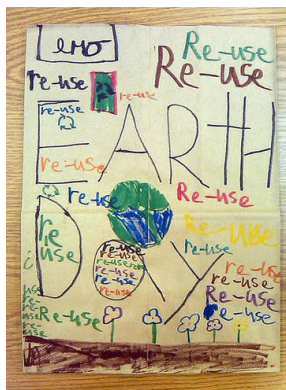 emo
Re-use
Re-use
re-use
re-use
re-use
EARTH
re-use
re-use
Re-use
re use
Re-use
re-use
DAY
re-use
re-use
re-use
re-use
re-use
re-use
re-use
Re-use
Re-use
re-
re-
re-
use
Re-use